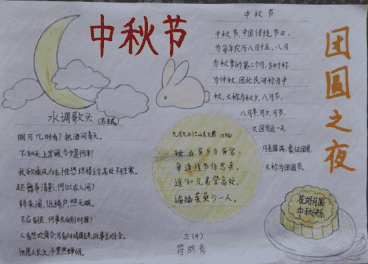 中秋节
团圆之夜
中秋节
中秋节,中国传统节日,
为每年农历八月十五,八月
为秋季的第二个月,古时称
为仲秋,因此民间称为中
秋,又称为秋夕,八月节,
八月半,月夕,月节,
又因为这一天
月亮满圆,象征团圆,
又称为团圆节。
水调歌头(苏轼)
明月几时有?把酒问青天。
不知天上宫阙,今夕是何年?
我欲乘风归去,惟恐琼楼玉宇,高处不胜寒。
起舞弄清影,何似在人间?
转朱阁,低绮户,照无眠。
不应有恨,何事长向别时圆?
人有悲欢离合,月有阴晴圆缺,此事古难全。
但愿人长久,千里共婵娟。
独在异乡为异客,
每逢佳节倍思亲。
遥知兄弟登高处,
遍插茱萸少一人。
花好月圆
中秋快乐
三(4)